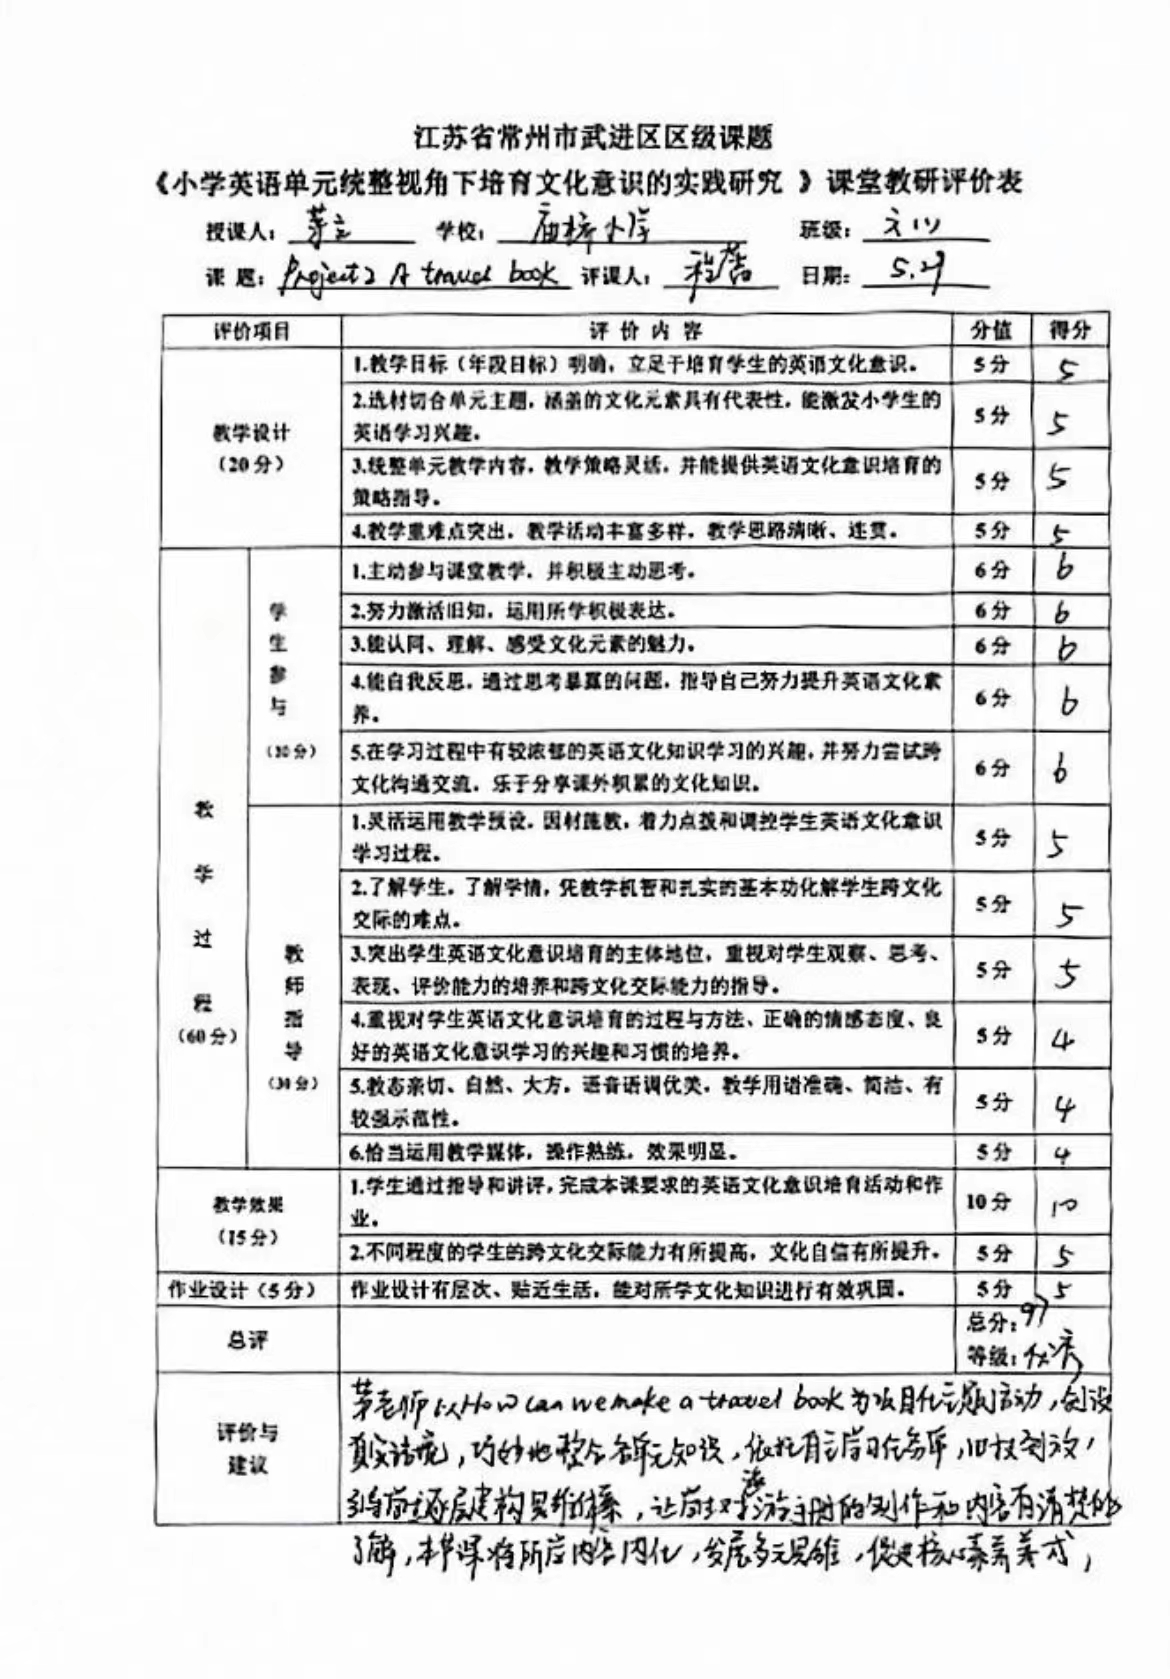 江苏省常州市武进区区级课题
《小学英语单元统整视角下培育文化意识的实践研究 》课堂教研评价表
授课人： 学校： 小学 班级：
课 题：Project2 A travel book 评课人： 日期：5.29
评价项目 评 价 内 容 分值 得分
教学设计
（20分）
1.教学目标（年段目标）明确，立足于培育学生的英语文化意识。 5分 5
2.选材切合单元主题，涵盖的文化元素具有代表性，能激发小学生的
英语学习兴趣。 5分 5
3.统整单元教学内容，教学策略灵活，并能提供英语文化意识培育的
策略指导。 5分 5
4.教学重难点突出，教学活动丰富多样，教学思路清晰、连贯。 5分 5
教学过程
（60分）
学生参与
（30分）
1.主动参与课堂教学，并积极主动思考。 6分 6
2.努力激活旧知，运用所学积极表达。 6分 6
3.能认同、理解、感受文化元素的魅力。 6分 6
4.能自我反思，通过思考暴露的问题，指导自己努力提升英语文化素
养。 6分 6
5.在学习过程中有较浓郁的英语文化知识学习的兴趣，并努力尝试跨
文化沟通交流，乐于分享课外积累的文化知识。 6分 6
教师指导
（30分）
1.灵活运用教学预设，因材施教，着力点拨和调控学生英语文化意识
学习过程。 5分 5
2.了解学生，了解学情，凭教学机智和扎实的基本功化解学生跨文化
交际的难点。 5分 5
3.突出学生英语文化意识培育的主体地位，重视对学生观察、思考、
表现、评价能力的培养和跨文化交际能力的指导。 5分 5
4.重视对学生英语文化意识培育的过程与方法、正确的情感态度、良
好的英语文化意识学习的兴趣和习惯的培养。 5分 4
5.教态亲切、自然、大方，语音语调优美，教学用语准确、简洁、有
较强示范性。 5分 4
6.恰当运用教学媒体，操作熟练，效果明显。 5分 4
教学效果
（15分）
1.学生通过指导和讲评，完成本课要求的英语文化意识培育活动和作
业。 10分 10
2.不同程度的学生的跨文化交际能力有所提高，文化自信有所提升。 5分 5
作业设计（5分） 作业设计有层次、贴近生活，能对所学文化知识进行有效巩固。 5分 5
总评
总分：97
等级：优秀
评价与
建议
老师以How can we make a travel book为项目化主题活动，创设
真实语境，巧妙地整合各单元知识，依托自主学习任务单，
逐层建构思维框架，让 对旅游手册的制作和内容有清楚的
了解，本节课将所应内容内化，发展多元思维，促进核心素养养成，